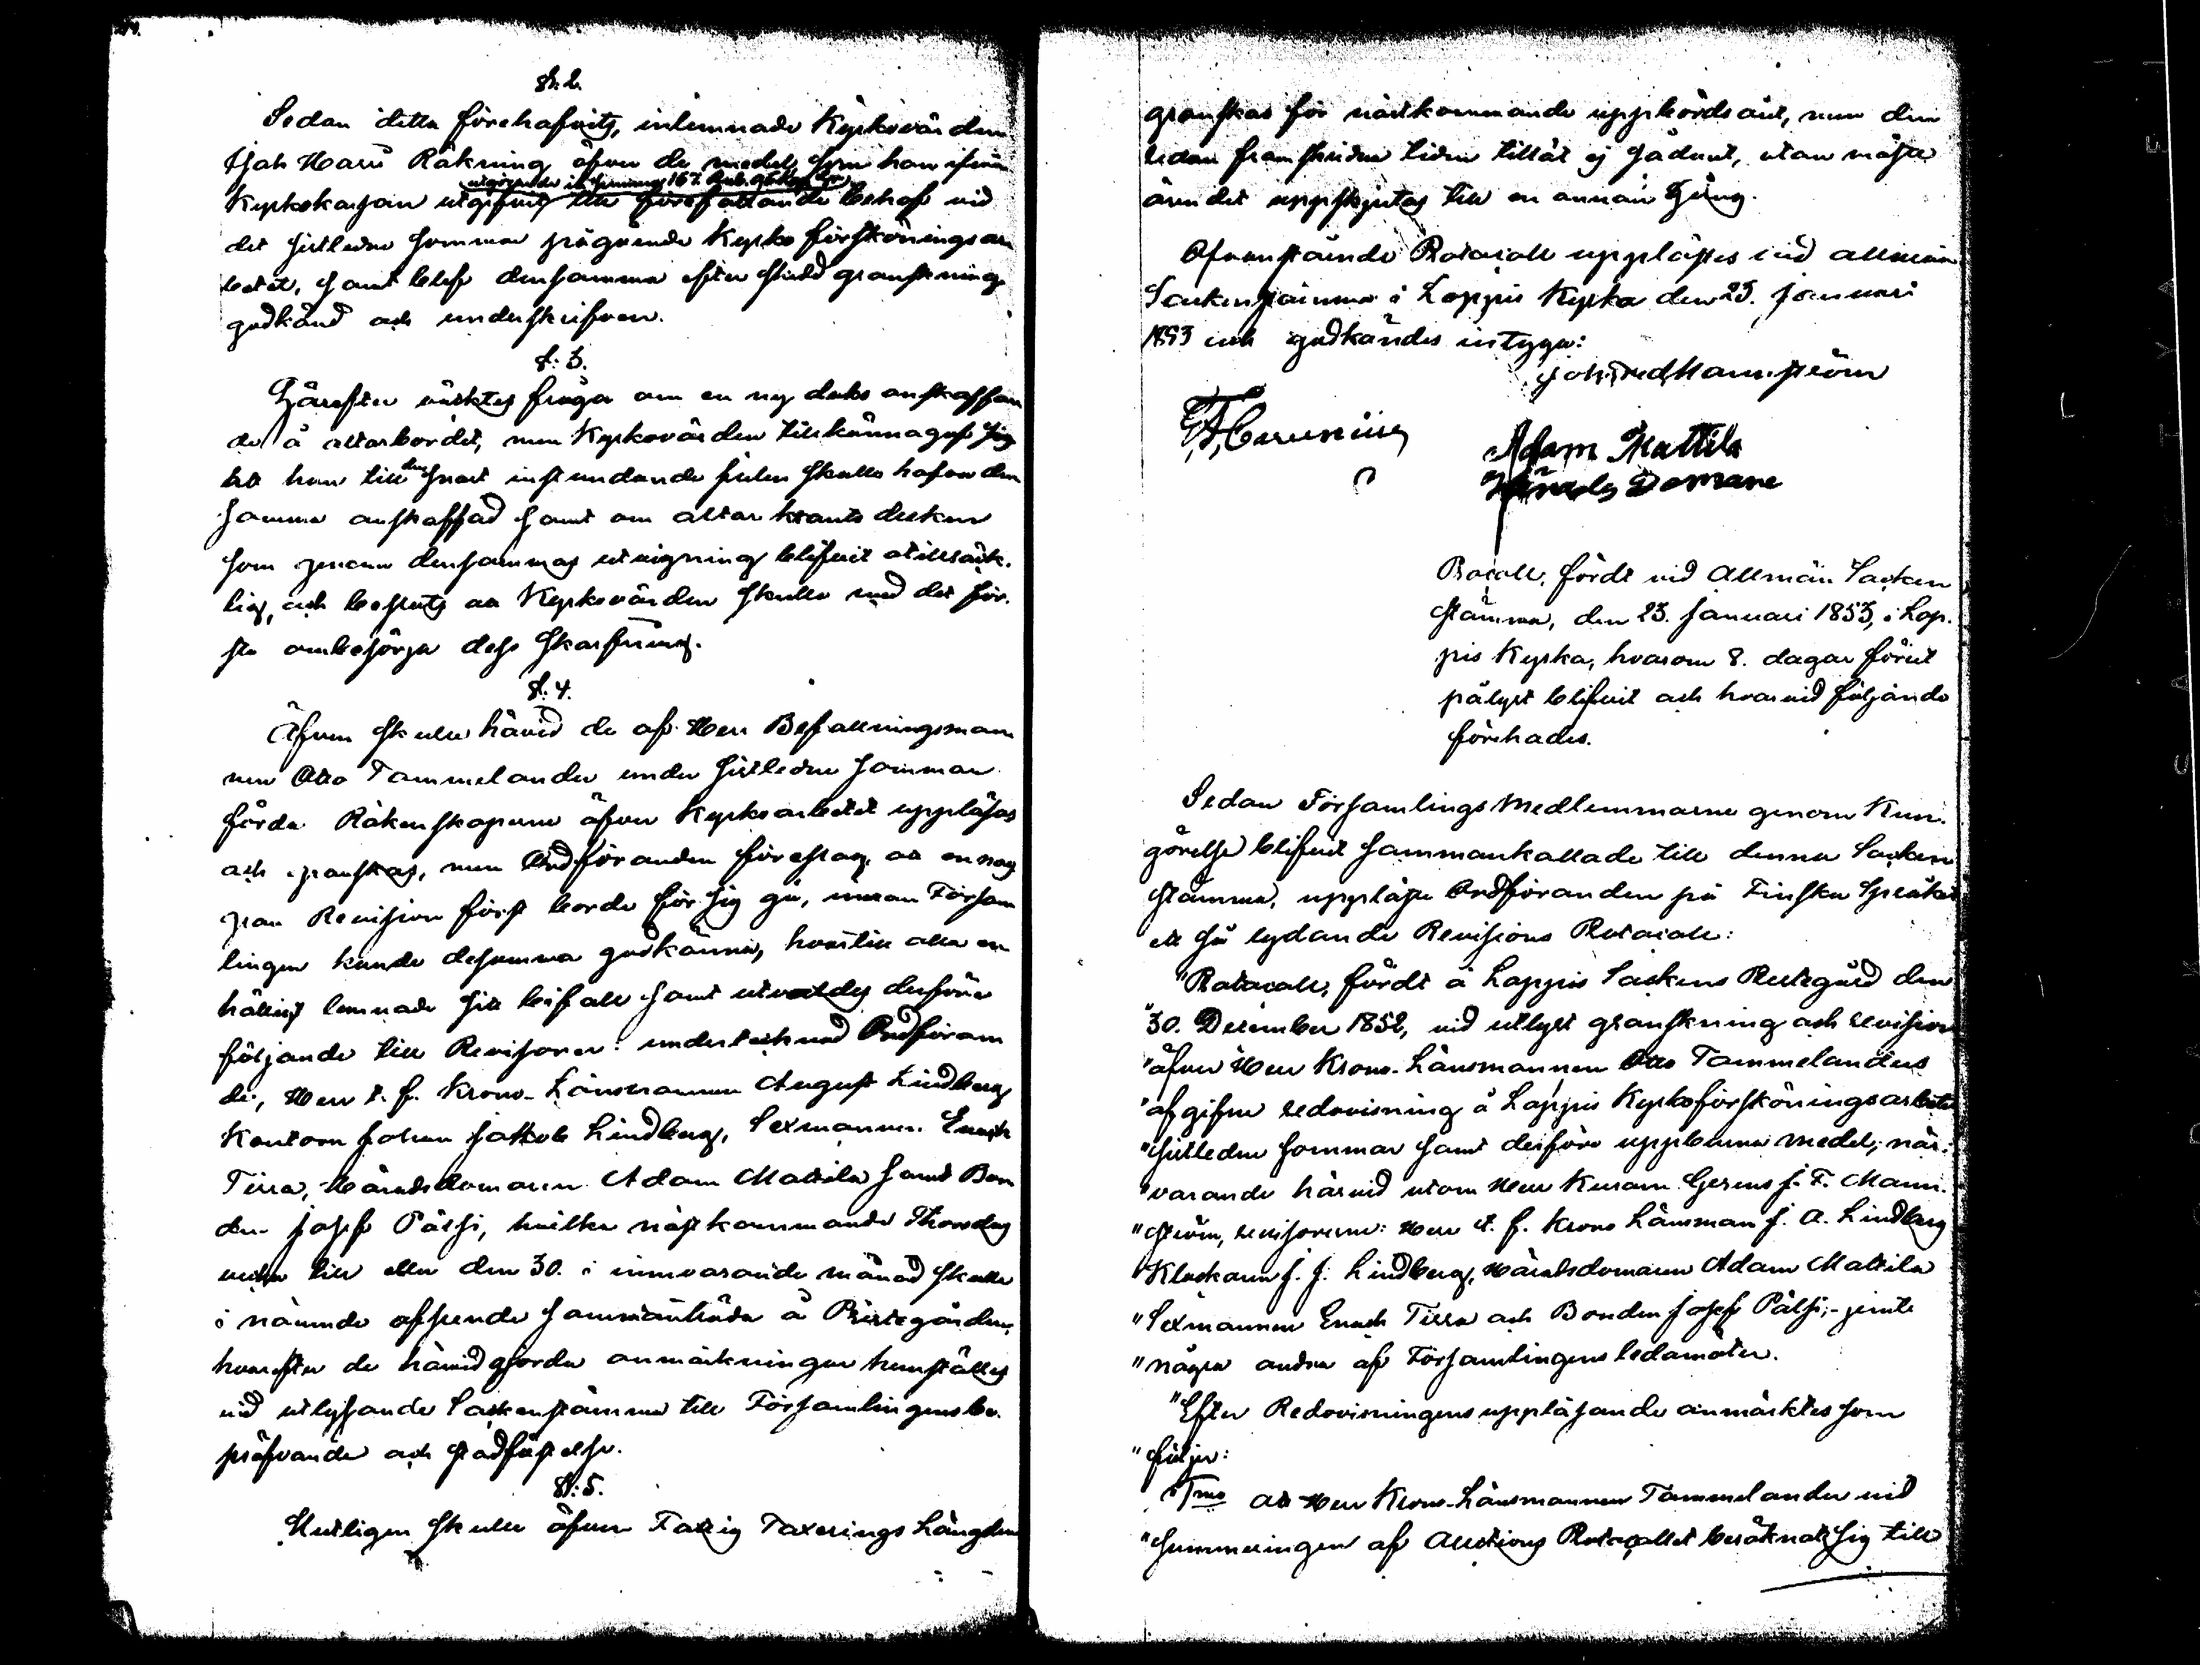 §. 2.
Sedan detta förehafvits, inlemnade Kyrkovärden
Isak Haru Räkning öfver de medel, som han ifrån
utgörande i en summa 167. Rub. 96 Kop. Sr.
Kyrkokassan utgifvit till förefallande behof vid
det sistledne sommar pågående Kyrko förskönings ar
betet, samt blef densamma efter skedd granskning
godkänd och underskrifven.
§. 3.
Härefter väcktes fråga om en ny duks anskaffan
de å altarbordet, men Kyrkovärden tillkännagaf sig
att han till den snart instundande julen skulle hafva den
samma anskaffad samt om altar krants duken
som genom densammas utvigning blifvit otillräck-
lig, och beslöts att Kyrkovärden skulle med det för-
sta ombesörja dess skarfning.
§. 4.
Äfven skulle härvid de af Herr Befallningsman
nen Otto Tammelander under sistledne sommar
förda Räkenskaperne öfver Kyrkoarbetet uppläsas
och granskas, men Ordföranden föreslog, att en nog
gran Revision först borde för sig gå, innan Försam
lingen kunde desamma godkänna, hvartill alla en
hälligt lemnade sitt bifall samt utvaldes derföre
följande till Revisorer: undertecknad Ordföran
de, Herr t. f. Krono-Länsmannen August Lindberg
Kantorn Johan Jakob Lindberg, Sexmannen Enoch
Tirra, Häradsdomaren Adam Mattila samt Bon
den Josef Pätsi, hvilka nästkommande Thorsdag
vecka till eller den 30. i innevarande månad skulle
i nämnde afseende sammanträda å Prestegården,
hvarefter de härvid gjorda anmärkningar hemställes
vid utlysande Sockenstämma till Församlingens be-
pröfvande och stadfästelse.
§. 5.
Slutligen skulle äfven Fattig Taxerings Längden
granskas för nästkommande uppbördsåret, men den
redan framskridna tiden tillät ej sådant, utan måste
ärendet uppskjutas till en annan gång.
Ofvanstående Protocoll upplästes vid allmän
Sockenstämma i Loppis Kyrka den 23. Januari
1853 och godkändes intyga:
Joh. Fred. Mannström
Adam Mattila
Härads Domare
Protocoll, fördt vid Allmän Socken
stämma, den 23. Januari 1853, i Lop-
pis Kyrka, hvarom 8. dagar förut
pålyst blifvit och hvarvid följande
förehades.
Sedan Församlings Medlemmarne genom Kun-
görelse blifvit sammankallade till denna Socken
stämma, uppläste Ordföranden på Finska Språket
ett så lydande Revisions Protocoll:
"Protocoll, fördt å Loppis Sockens Prestegård den
"30. December 1852, vid utlyst granskning och revision
"öfver Herr Krono-Länsmannen Otto Tammelanders
"afgifne redovisning å Loppis Kyrkoförsköningsarbete
"sistledne sommar samt derföre uppburne medel; när-
"varande härvid utom Herr Kuram Gerens J. F. Mann-
"ström, revisorerne: Herr t. f. Krono Länsman J. A. Lindberg
"Klockaren J. J. Lindberg, Häradsdomaren Adam Mattila
"Sexmannen Enoch Tirra och Bonden Josef Pätsi; jemte
"några andra af Församlingens ledamöter.
"Efter Redovisningens uppläsande anmärktes som
"följer:
"1mo att Herr Krono-Länsmannen Tammelander vid
"summeringen af Auctions Protocollet beräknat sig till